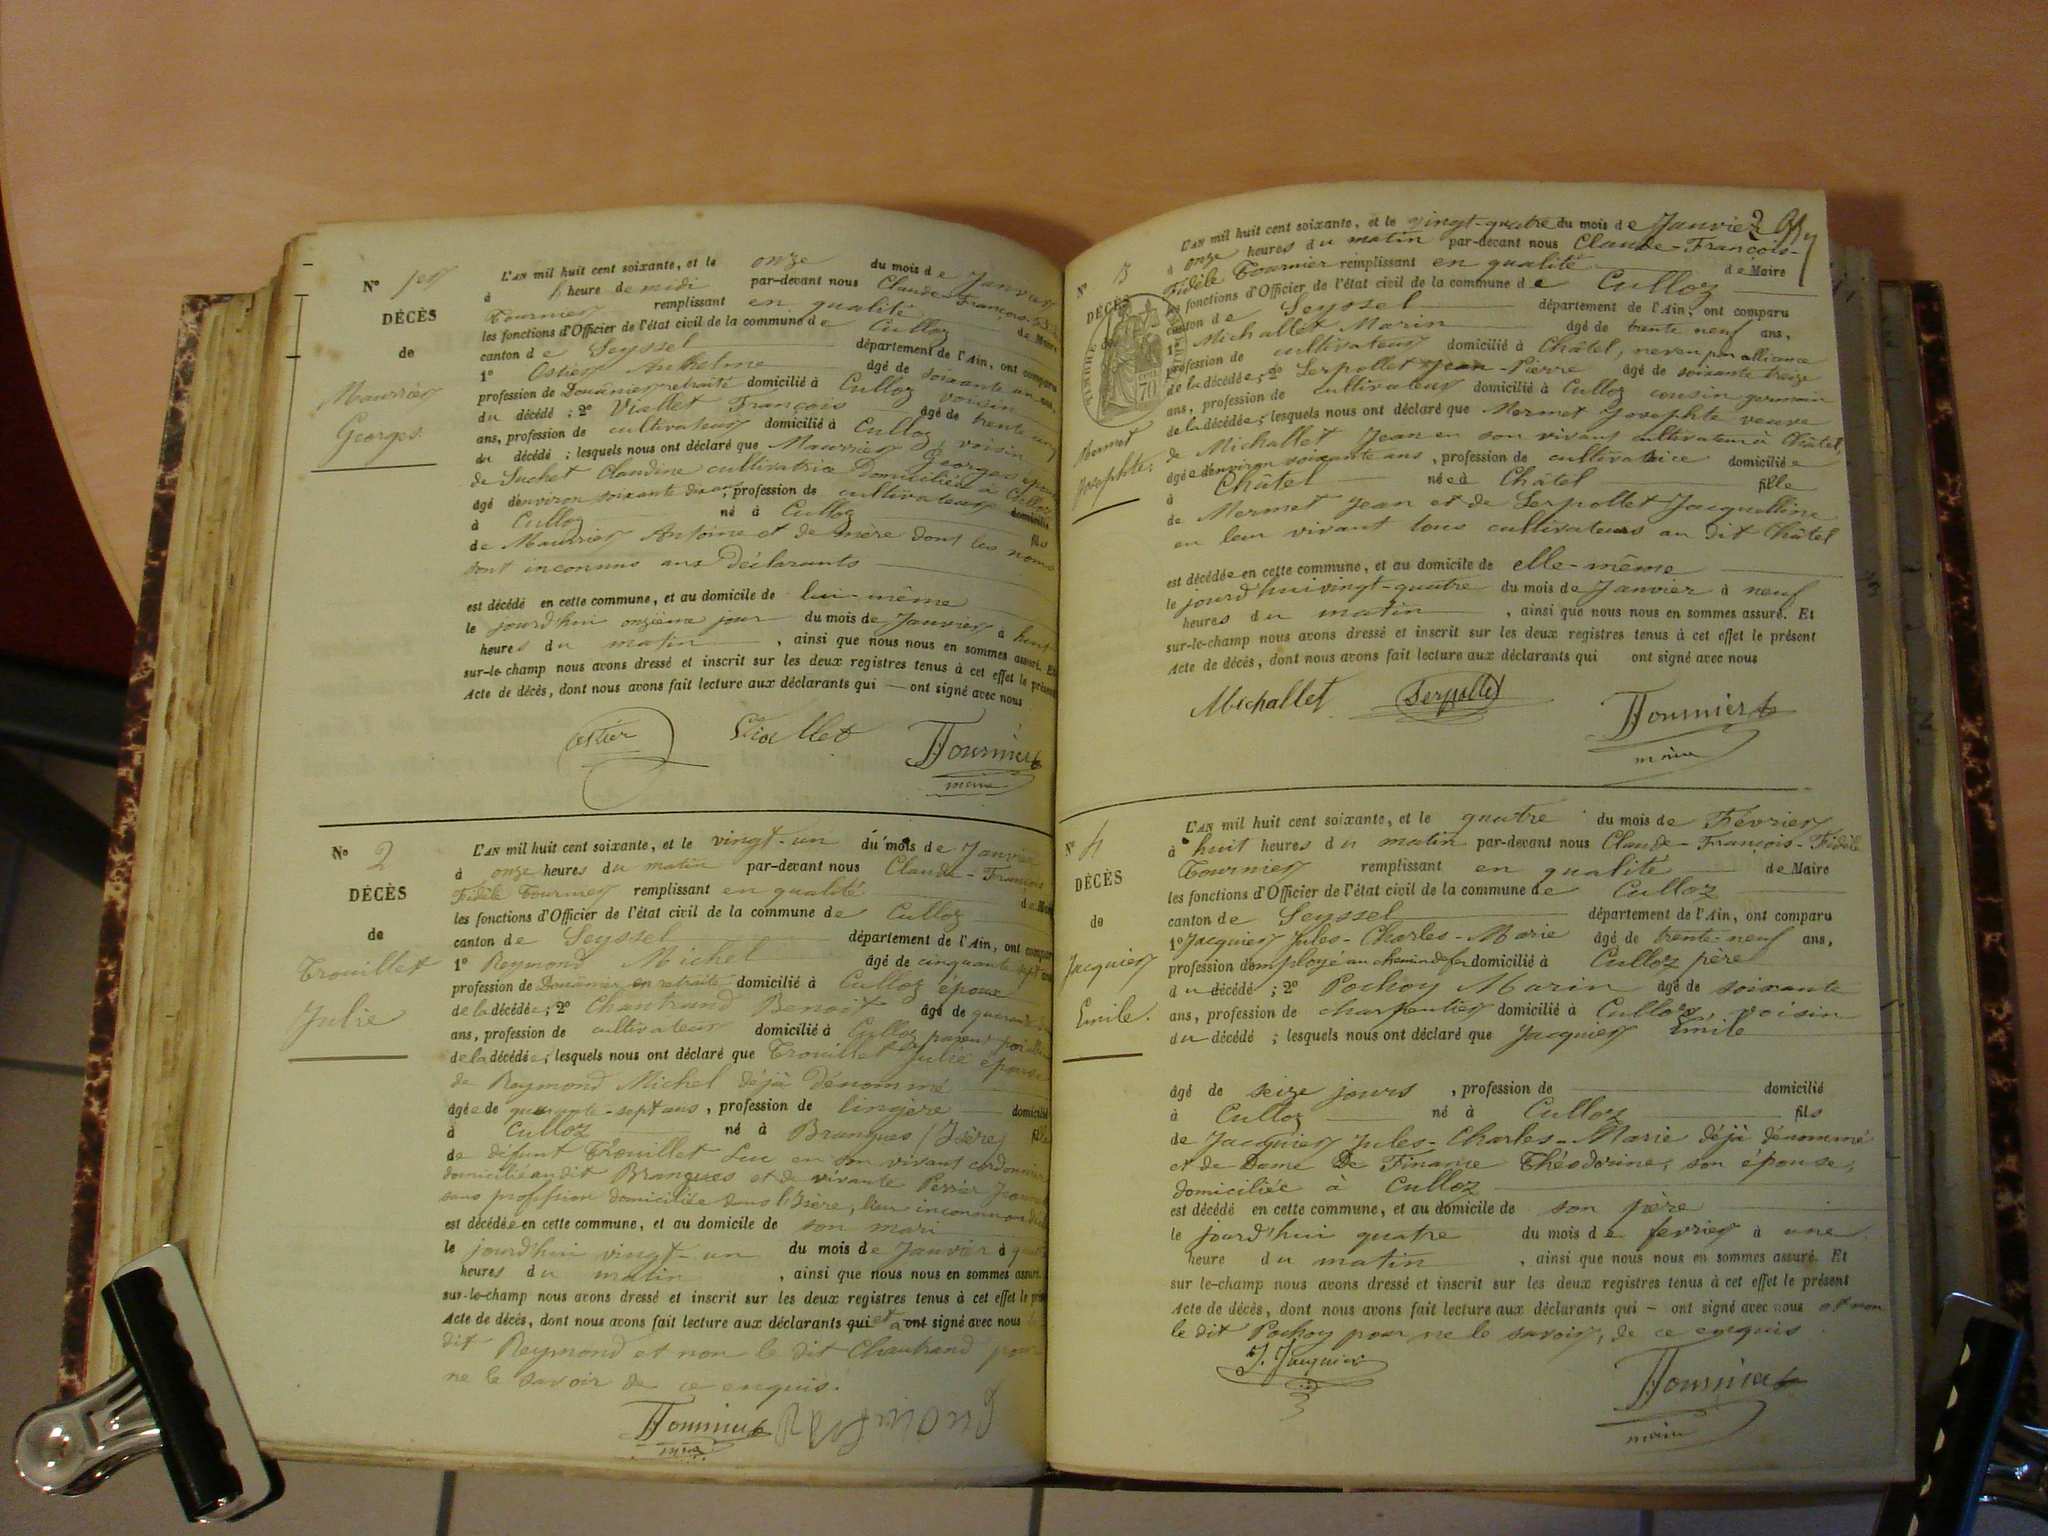 N° 1er
DÉCÈS
de
Maurrier
Georges.
L'AN mil huit cent soixante, et le onze du mois de Janvier
à heure de midi par-devant nous Claude-François-
Tournier remplissant en qualité de Maire
les fonctions d'Officier de l'état civil de la commune de Culloz
canton de Seyssel département de l'Ain, ont comparu
1° Ostier Anthelme âgé de soixante un ans,
profession de Douanier retraité domicilié à Culloz voisin
du décédé ; 2° Viallet François âgé de trente un
ans, profession de cultivateur domicilié à Culloz, voisin
du décédé ; lesquels nous ont déclaré que Maurrier Georges époux
de Suchet Claudine cultivatrice Domiciliée à Culloz
âgé d'environ soixante dix ans, profession de cultivateur domicilié
à Culloz né à Culloz fils
de Maurrier Antoine et de mère dont les noms
sont inconnus aux Déclarants
est décédé en cette commune, et au domicile de lui-même
le jourd'hui onzième jour du mois de Janvier à huit
heures du matin, ainsi que nous nous en sommes assuré. Et
sur-le-champ nous avons dressé et inscrit sur les deux registres tenus à cet effet le présent
Acte de décès, dont nous avons fait lecture aux déclarants qui ont signé avec nous
Ostier Viallet Tournier
maire
N° 2
DÉCÈS
de
Trouillet
Julie
L'AN mil huit cent soixante, et le vingt-un du mois de Janvier
à onze heures du matin par-devant nous Claude-François
Fidèle Tournier remplissant en qualité de Maire
les fonctions d'Officier de l'état civil de la commune de Culloz
canton de Seyssel département de l'Ain, ont comparu
1° Reymond Michel âgé de cinquante sept ans
profession de Douanier en retraite domicilié à Culloz époux
de la décédée ; 2° Chantrand Benoit âgé de
ans, profession de cultivateur domicilié à Culloz parent
de la décédée ; lesquels nous ont déclaré que Trouillet Julie épouse
de Reymond Michel déjà dénommé
âgée de quarante-sept ans, profession de lingère domicilié
à Culloz né à Brangues (Isère) fille
de défunt Trouillet Luc en son vivant cordonnier
domicilié au dit Brangues et de vivante Perrier
sans profession domiciliée dans l'Isère, lieu inconnu
est décédée en cette commune, et au domicile de son mari
le jourd'hui vingt-un du mois de Janvier à
heures du matin, ainsi que nous nous en sommes assuré.
sur-le-champ nous avons dressé et inscrit sur les deux registres tenus à cet effet le présent
Acte de décès, dont nous avons fait lecture aux déclarants qui ont signé avec nous
dit Reymond et non le dit Chantrand pour
ne le savoir de ce enquis.
Tournier
maire
N° 3
DÉCÈS
Mermet
Josephte.
L'AN mil huit cent soixante, et le vingt-quatre du mois de Janvier
à onze heures du matin par-devant nous Claude-François-
Fidèle Tournier remplissant en qualité de Maire
les fonctions d'Officier de l'état civil de la commune de Culloz
canton de Seyssel département de l'Ain, ont comparu
1° Michallet Marin âgé de trente neuf ans,
profession de cultivateur domicilié à Châtel, neveu par alliance
de la décédée ; 2° Serpollet Jean-Pierre âgé de soixante treize
ans, profession de cultivateur domicilié à Culloz cousin germain
de la décédée ; lesquels nous ont déclaré que Mermet Josephte veuve
de Michallet Jean en son vivant cultivateur à Châtel,
âgée d'environ soixante ans, profession de cultivatrice domiciliée
à Châtel née à Châtel fille
de Mermet Jean et de Serpollet Jacquelline
en leur vivant tous cultivateurs au dit Châtel
est décédée en cette commune, et au domicile de elle-même
le jourd'hui vingt-quatre du mois de Janvier à neuf
heures du matin, ainsi que nous nous en sommes assuré. Et
sur-le-champ nous avons dressé et inscrit sur les deux registres tenus à cet effet le présent
Acte de décès, dont nous avons fait lecture aux déclarants qui ont signé avec nous
Michallet Serpollet Tournier
maire
N° 4
DÉCÈS
de
Jacquier
Emile.
L'AN mil huit cent soixante, et le quatre du mois de Février
à huit heures du matin par-devant nous Claude-François-Fidèle
Tournier remplissant en qualité de Maire
les fonctions d'Officier de l'état civil de la commune de Culloz
canton de Seyssel département de l'Ain, ont comparu
1° Jacquier Jules-Charles-Marie âgé de trente-neuf ans,
profession d'employé au chemin de fer domicilié à Culloz père
du décédé ; 2° Pochoy Marin âgé de soixante
ans, profession de charpentier domicilié à Culloz, voisin
du décédé ; lesquels nous ont déclaré que Jacquier Emile
âgé de seize jours, profession de domicilié
à Culloz né à Culloz fils
de Jacquier Jules-Charles-Marie déjà dénommé
et de Dame De Finance Théodorine, son épouse,
domiciliée à Culloz
est décédé en cette commune, et au domicile de son père
le jourd'hui quatre du mois de fevrier à une
heure du matin, ainsi que nous nous en sommes assuré. Et
sur le-champ nous avons dressé et inscrit sur les deux registres tenus à cet effet le présent
Acte de décès, dont nous avons fait lecture aux déclarants qui – ont signé avec nous et non
le dit Pochoy pour ne le savoir, de ce enquis.
J. Jacquier Tournier
maire